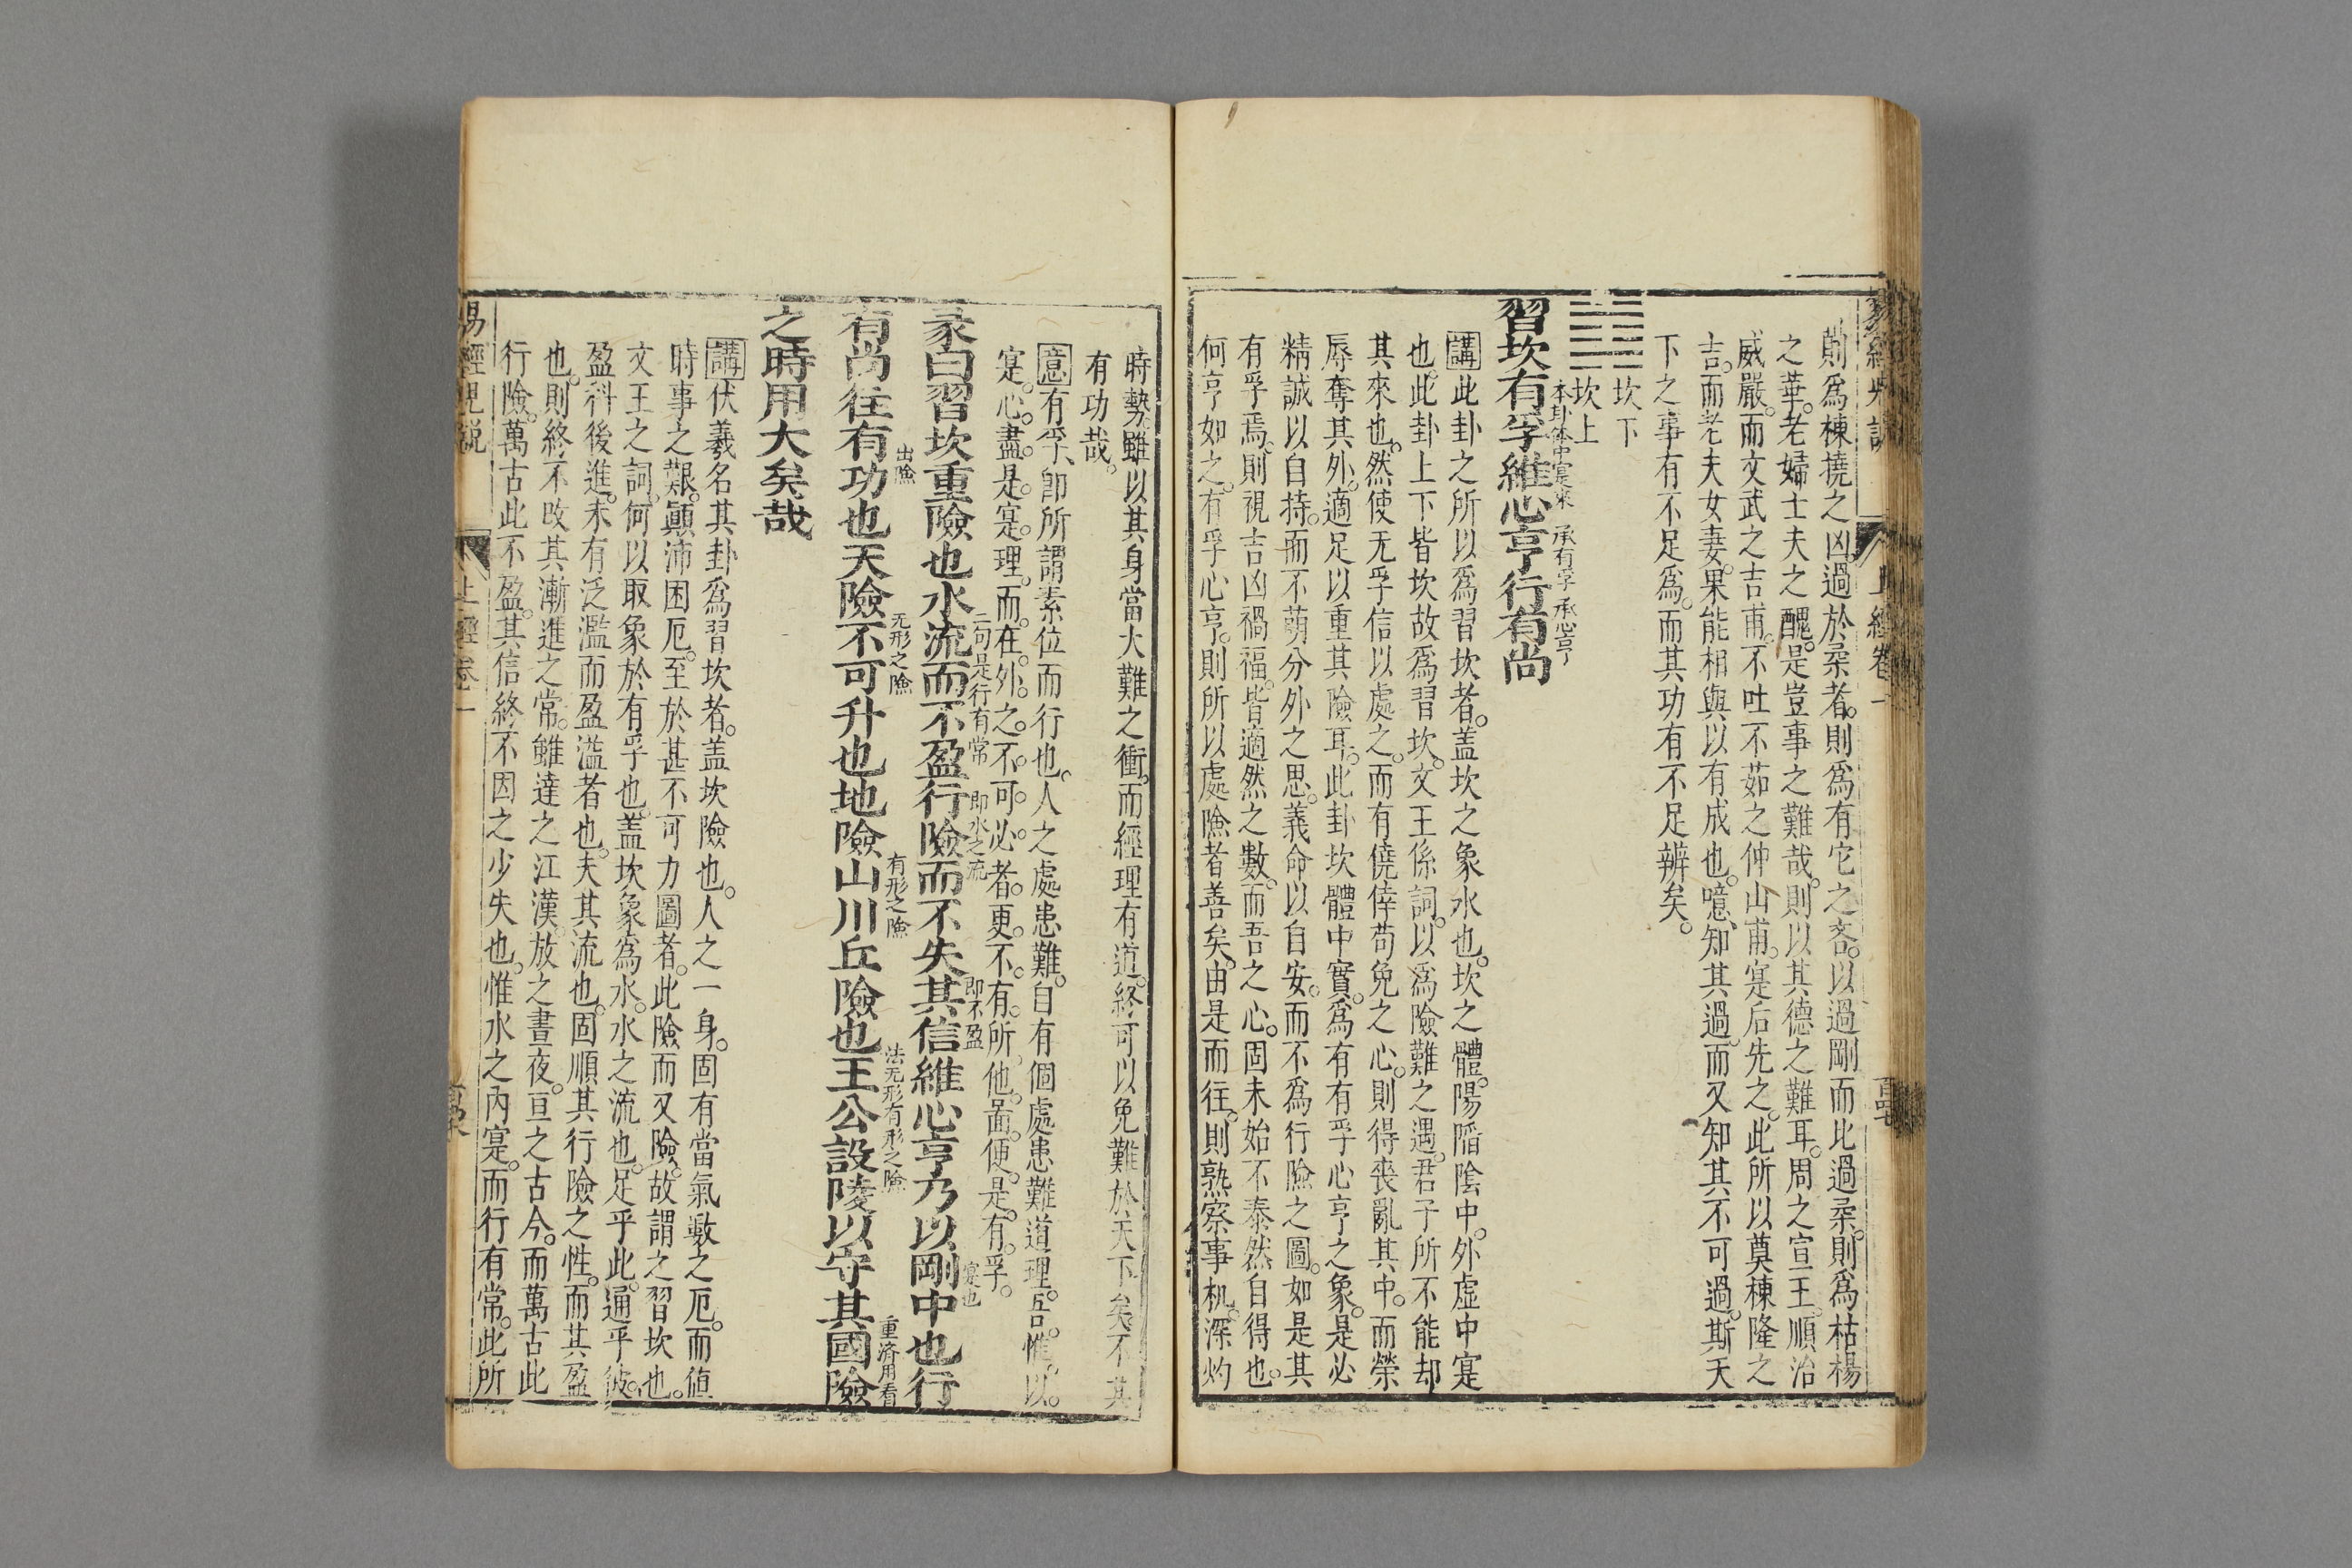 則爲棟撓之凶。過於柔者。則爲有它之吝。以過剛而比過柔。則爲枯楊
之華。老婦士夫之醜。是豈事之難哉。則以其德之難耳。周之宣王。順治
威嚴。而文武之吉甫。不吐不茹之仲山甫。寔后先之。此所以奠棟隆之
吉。而老夫女妻。果能相與以有成也。噫、知其過。而又知其不可過。斯天
下之事有不足爲。而其功有不足辨矣。
坎下
坎上
本卦体中寔來 承有孚 承心亨
習坎有孚維心亨行有尚
講此卦之所以爲習坎者。盖坎之象水也。坎之體。陽陷陰中。外虛中寔
也。此卦上下皆坎。故爲習坎。文王係詞。以爲險難之遇。君子所不能却
其來也。然使无孚信以處之。而有僥倖苟免之心。則得喪亂其中。而榮
辱奪其外。適足以重其險耳。此卦坎體中實。爲有有孚心亨之象。是必
精誠以自持。而不萌分外之思。義命以自安。而不爲行險之圖。如是其
有孚焉。則視吉凶禍福。皆適然之數。而吾之心。固未始不泰然自得也。
何亨如之。有孚心亨。則所以處險者善矣。由是而往。則熟察事机。深灼
時勢。雖以其身當大難之衝。而經理有道。終可以免難於天下矣。不其
有功哉。
意有孚、卽所謂素位而行也。人之處患難。自有個處患難道理。吾。惟。以。
寔。心。盡。是。寔。理。而。在。外。之。不。可。必。者。更。不。有。所。他。啚。便。是。有。孚。
二句是行有常 即水之流 即不盈 寔也
彖曰習坎重險也水流而不盈行險而不失其信維心亨乃以剛中也行
出險 无形之險 有形之險 法无形有形之險 重済用看
有尚往有功也天險不可升也地險山川丘險也王公設陵以守其國險
之時用大矣哉
講伏羲名其卦爲習坎者。盖坎險也。人之一身。固有當氣數之厄。而値
時事之艱。顚沛困厄。至於甚不可力圖者。此險而又險。故謂之習坎也。
文王之詞。何以取象於有孚也。盖坎象爲水。水之流也。足乎此。通乎彼。
盈科後進。未有泛濫而盈溢者也。夫其流也。固順其行險之性。而其盈
也。則終不改其漸進之常。雖達之江漢。放之晝夜。亘之古今。而萬古此
行險。萬古此不盈。其信終不因之少失也。惟水之內寔。而行有常。此所